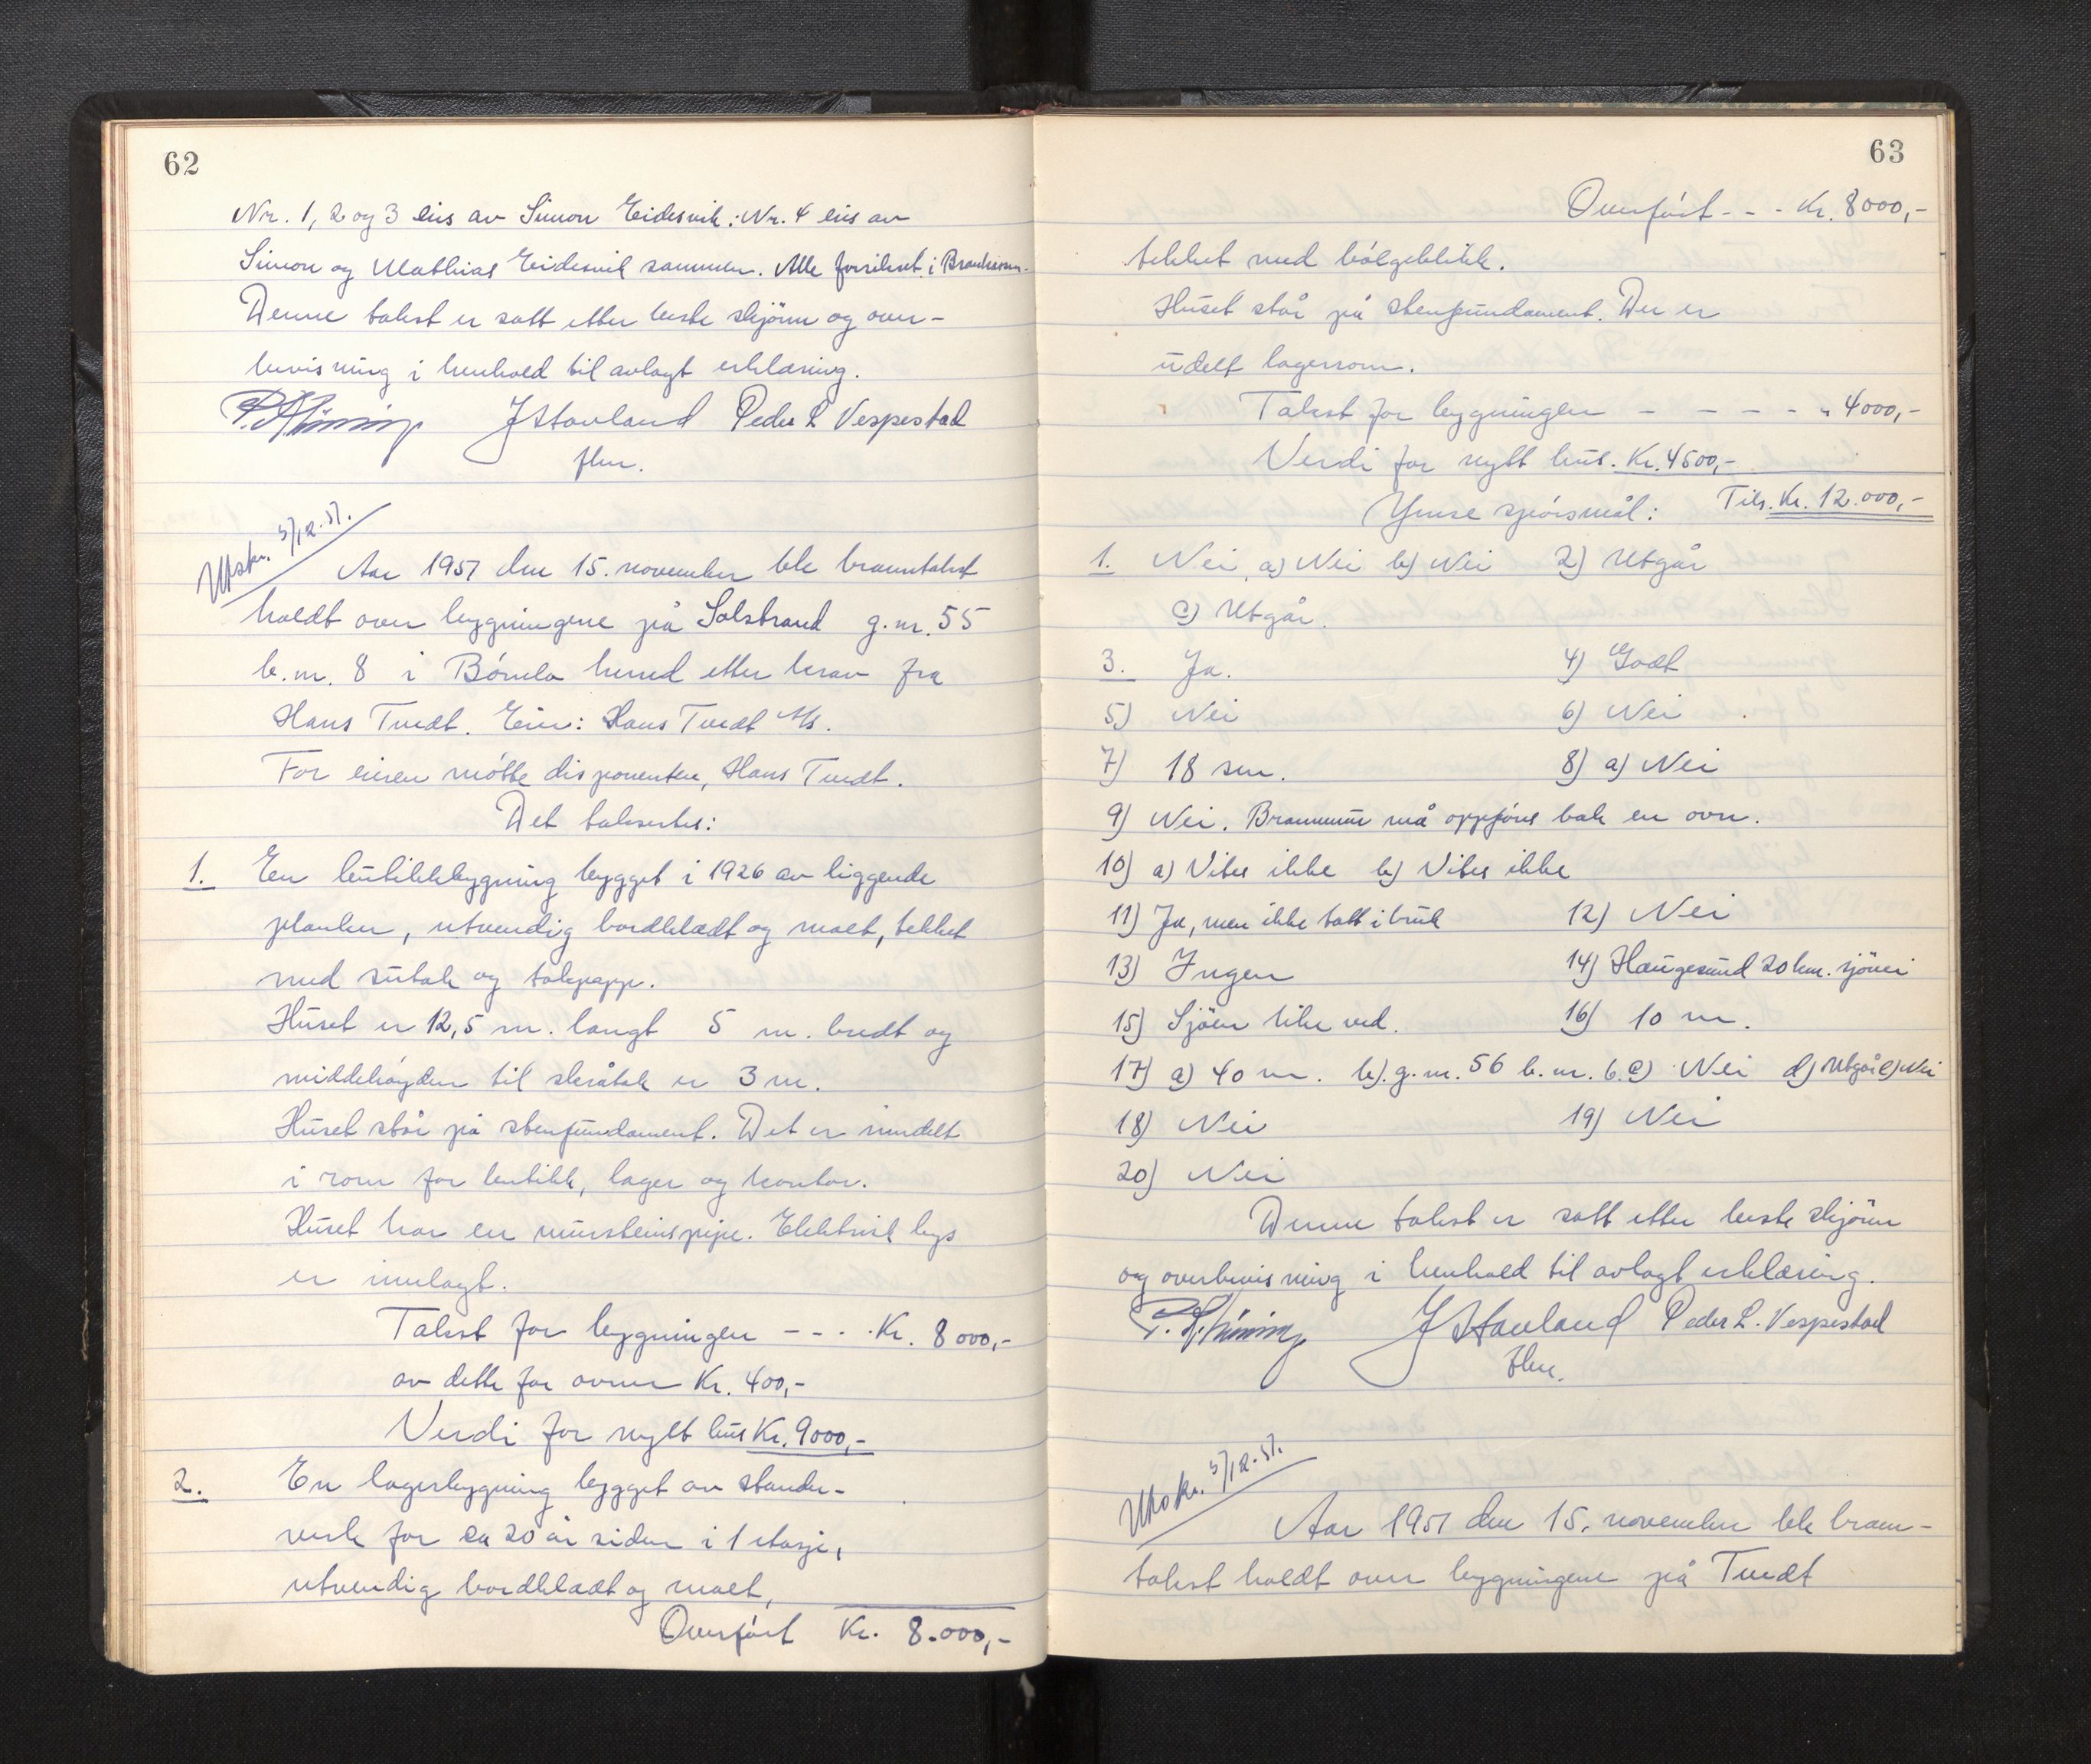 62
Nr. 1, 2 og 3 eies av Simon Eidesvik: Nr. 4 eies av
Simon og Mathias Eidesvik sammen. Alle forsikret i
Denne takst er satt etter beste skjönn og over-
bevisning i henhold til avlagt erklæring.
J Stavland Peder L Vespestad
flm.
Utskr. 5/12-51.
Aar 1951 den 15. november ble branntakst
holdt over bygningene på Solstrand g.nr. 55
b.nr. 8 i Bömlo herred etter krav fra
Hans Tvedt. Eier: Hans Tvedt A/s.
For eieren mötte disponenten, Hans Tvedt.
Det taksertes:
1. En butikkbygning bygget i 1926 av liggende
planker, utvendig bordklædt og malt, tekket
med sutak og takpapp.
Huset er 12,5 m. langt 5 m. bredt og
middelhöyden til skråtak er 3 m.
Huset står på stenfundament. Det er inndelt
i rom for butikk, lager og kontor.
Huset har en mursteinspipe. Elektrisk lys
er innlagt.
Takst for bygningen - - - . Kr. 8000,-
av dette for ovner Kr. 400,-
Verdi for nytt hus Kr. 9000,-
2. En lagerbygning bygget av stender-
verk for ca 20 år siden i 1 etasje,
utvendig bordklædt og malt,
Overfört Kr. 8.000,-
63
Overfört - - - Kr. 8000,-
tekket med bölgeblikk.
Huset står på stenfundament. Der er
udelt lagerrom.
Takst for bygningen - - - - " 4000,-
Verdi for nytt hus. Kr. 4500,-
Ymse spörsmål: Tils. Kr. 12.000,-
1. Nei, a) Nei b) Nei 2) Utgår
c) Utgår.
3. Ja. 4) Godt
5) Nei 6) Nei
7) 18 sm. 8) a) Nei
9) Nei. Brannmur må oppföres bak en ovn.
10) a) Vites ikke b) Vites ikke
11) Ja, men ikke tatt i bruk 12) Nei
13) Ingen 14) Haugesund 20 km. sjövei
15) Sjöen like ved. 16) 10 m.
17) a) 40 m. b). g.nr. 56 b.nr. 6. c) Nei d) Utgår e) Nei
18) Nei 19) Nei
20) Nei
Denne takst er satt etter beste skjönn
og overbevisning i henhold til avlagt erklæring.
J Stavland Peder L. Vespestad
flm.
Utskr. 5/12-51.
Aar 1951 den 15. november ble brann-
takst holdt over bygningene på Tvedt